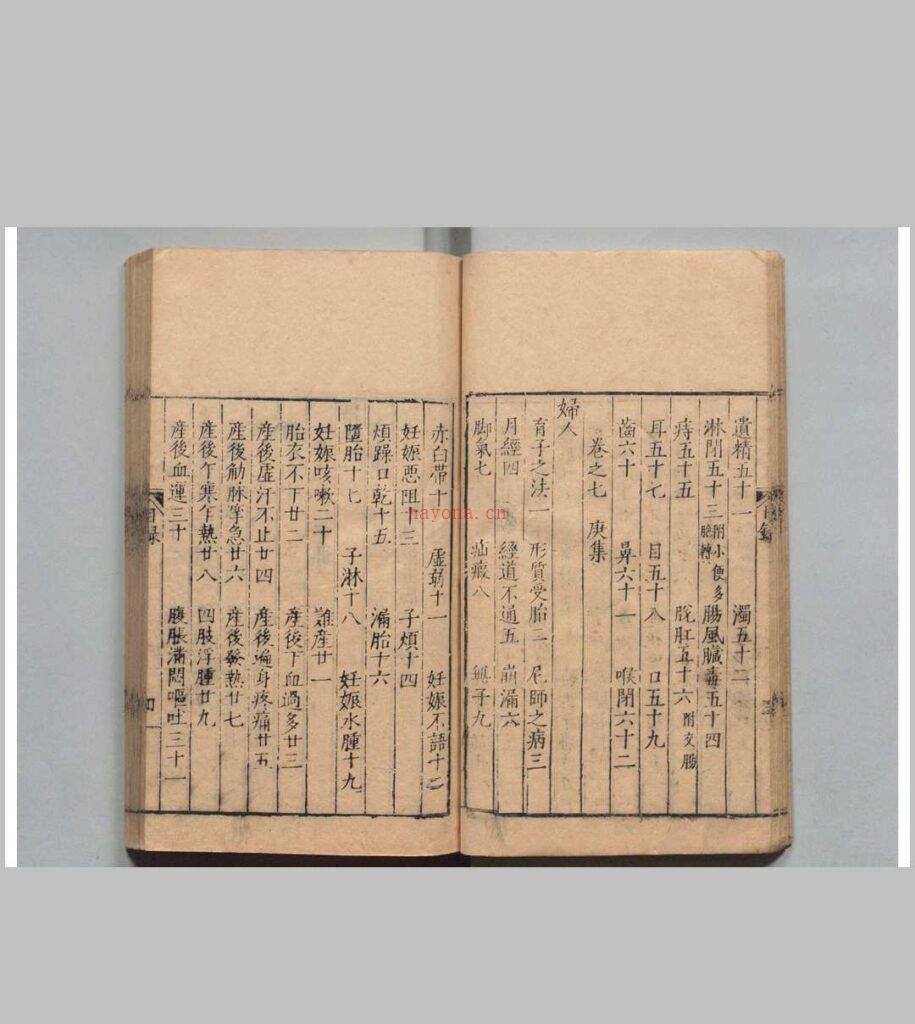 遺精五十一 濁五十二
淋閉五十三 附小便多 胞轉 腸風臟毒五十四
痔五十五 脫肛五十六 附交腸
耳五十七 目五十八 口五十九
齒六十 鼻六十一 喉閉六十二
卷之七 庚集
婦人
育子之法一 形質受胎二 尼師之病三
月經四 經道不通五 崩漏六
脚氣七 疝瘕八 無子九
目錄
赤白帶十 虛弱十一 妊娠不語十二
妊娠惡阻十三 子煩十四
煩躁口乾十五 漏胎十六
墮胎十七 子淋十八 妊娠水腫十九
妊娠咳嗽二十 難產廿一
胎衣不下廿二 產後下血過多廿三
產後虛汗不止廿四 產後遍身疼痛廿五
產後觔脉攣急廿六 產後發熱廿七
產後乍寒乍熱廿八 四肢浮腫廿九
產後血運三十 腹脹滿悶嘔吐三十一
目錄
四
hayona.cn